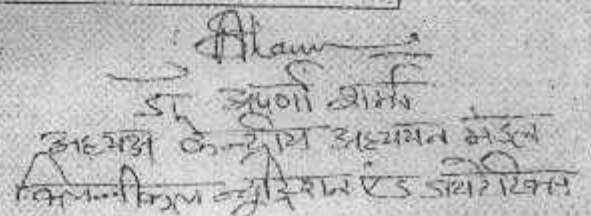 डॉ. अपर्णा शर्मा
अध्यक्ष केन्द्रीय अध्ययन मंडल
क्लिनीकल न्युट्रिशन एंड डायटेटिक्स